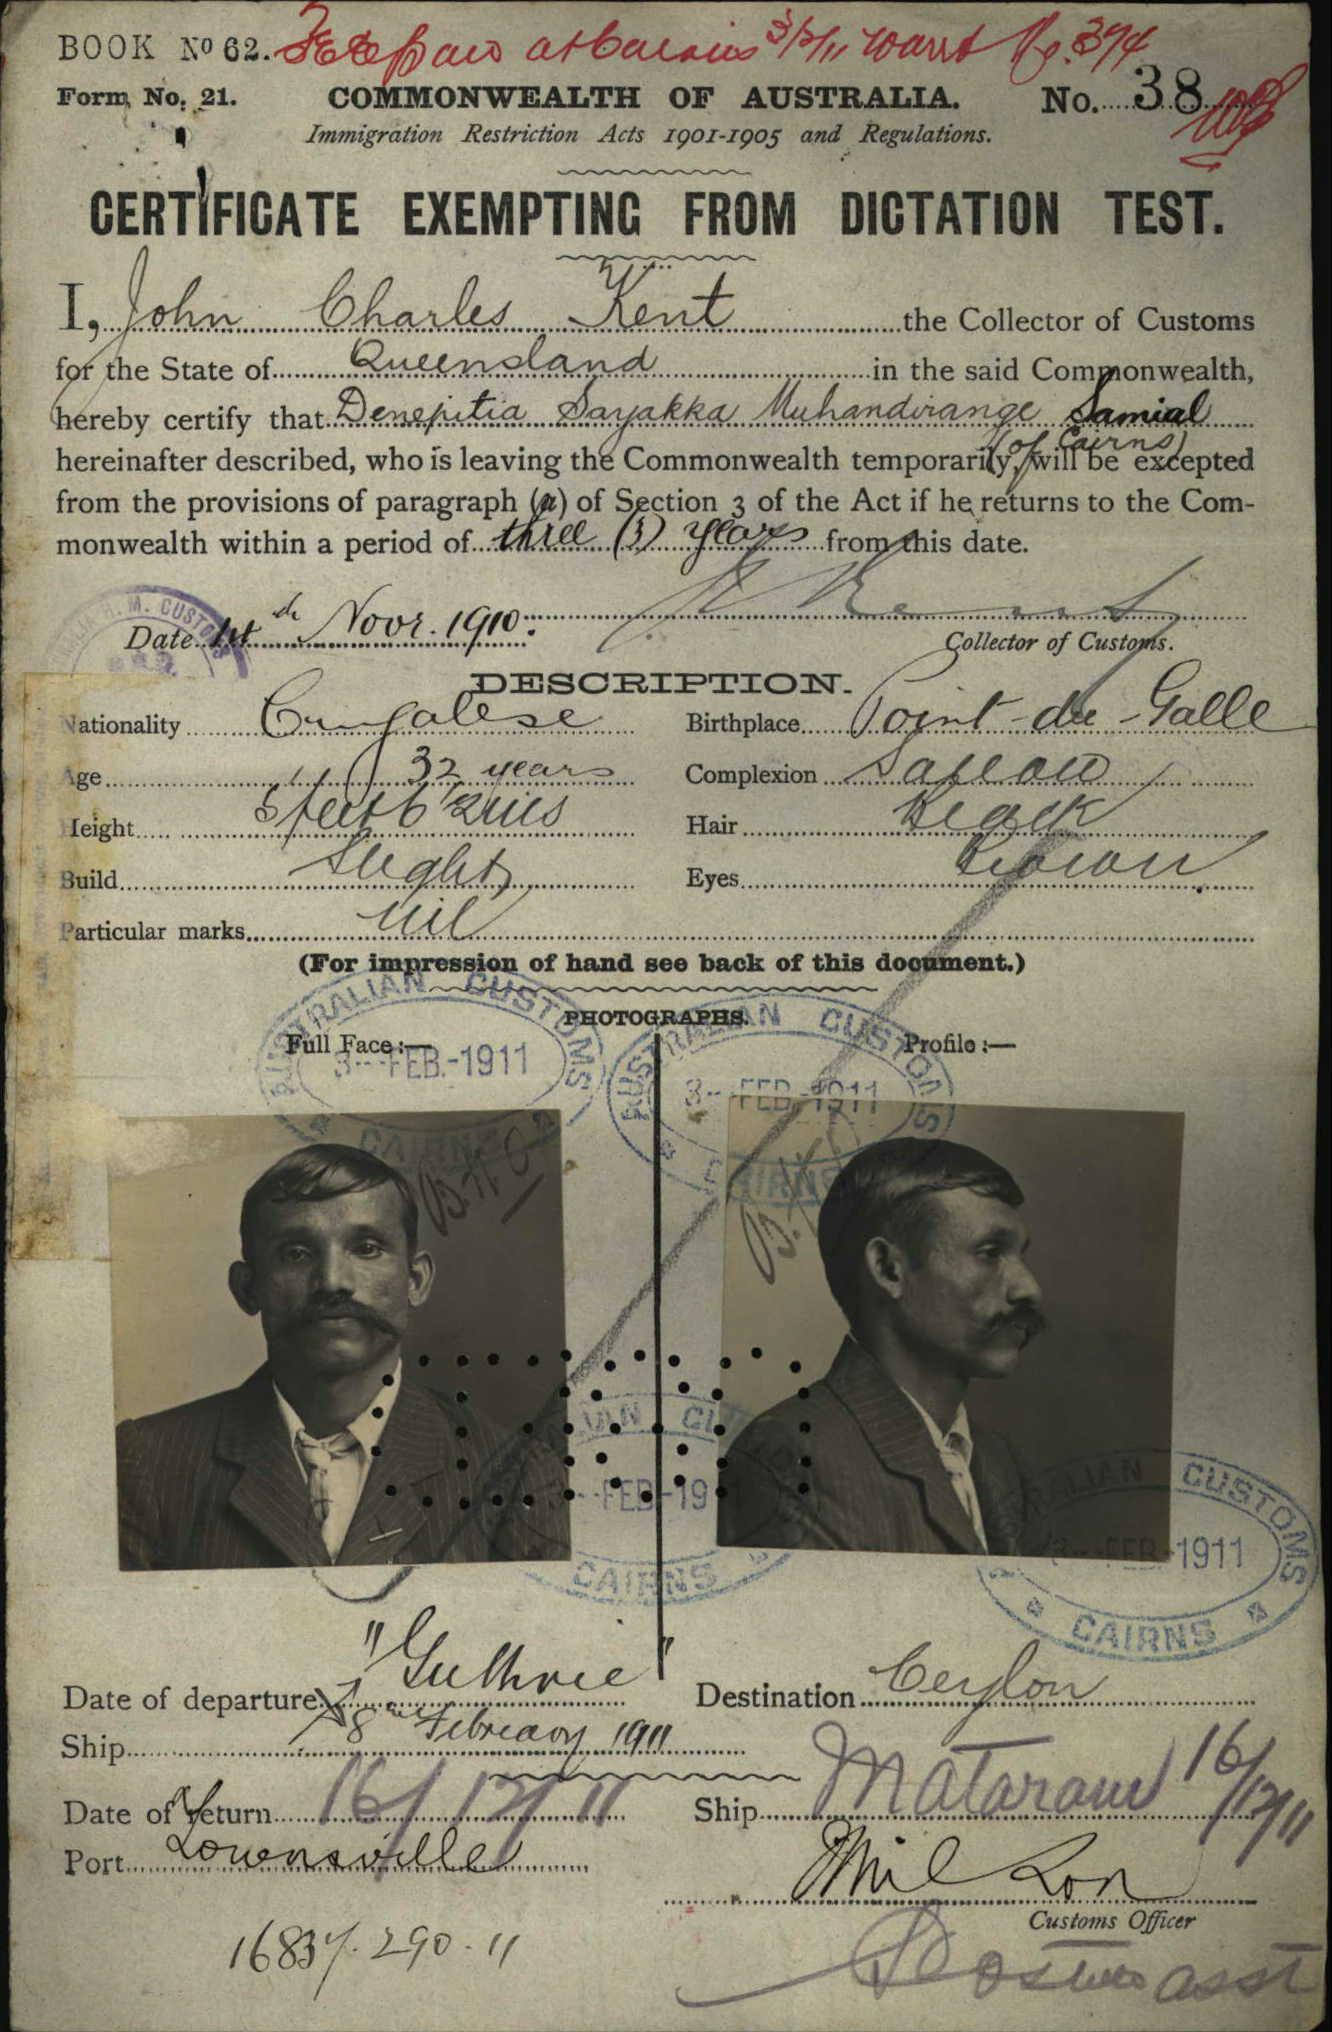 BOOK No 62. at Cairns 3/2/11 Warrt No. 374
Form No. 21. COMMONWEALTH OF AUSTRALIA. No. 38
Immigration Restriction Acts 1901-1905 and Regulations.
CERTIFICATE EXEMPTING FROM DICTATION TEST.
I, John Charles Kent the Collector of Customs
for the State of Queensland in the said Commonwealth,
hereby certify that Denepitia Sayakka Muhandirange Samial
(of Cairns)
hereinafter described, who is leaving the Commonwealth temporarily, will be excepted
from the provisions of paragraph (a) of Section 3 of the Act if he returns to the Com-
monwealth within a period of three (3) years from this date.
H. M. CUSTOMS
Date 14th Novr. 1910.
Collector of Customs.
DESCRIPTION.
Nationality Cingalese Birthplace Point-du-Galle
Age 32 years Complexion Sallow
Height 5 feet 6 1/2 ins Hair Black
Build Slight Eyes Brown
Particular marks nil
(For impression of hand see back of this document.)
PHOTOGRAPHS.
Full Face:— Profile:—
AUSTRALIAN CUSTOMS 3--FEB.-1911 CAIRNS
AUSTRALIAN CUSTOMS 3--FEB.-1911 CAIRNS
AUSTRALIAN CUSTOMS 3--FEB.-19 CAIRNS
AUSTRALIAN CUSTOMS 3--FEB.-1911 CAIRNS
"Guthrie"
Date of departure Destination Ceylon
Ship 8 February 1911
Date of return 16/12/11 Ship Mataram 16/12/11
Port Townsville
Customs Officer
16837.290.11
asst